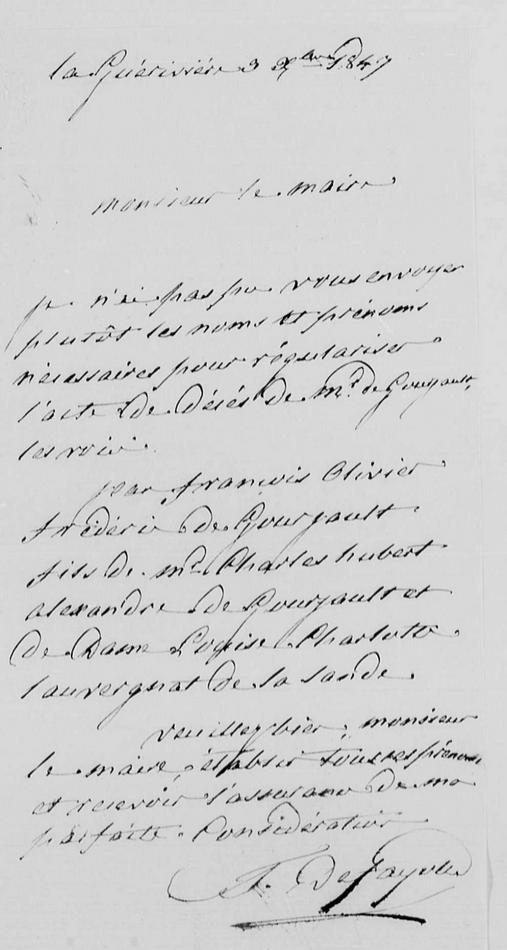 la Guérivière 3 xbre 1847
monsieur le maire
je n'ai pas pu vous envoyer
plutôt les noms et prénoms
nécessaires pour régulariser
l'acte de désés de mr. de Gourjault,
les voici.
jean françois Olivier
frédéric de Gourjault
fils de mr Charles hubert
alexandre de Gourjault et
de Dame Louise Charlotte
lauvergnat de la lande.
veuillez bien, monsieur
le maire, établir tous ses prénoms
et resevoir l'assurance de ma
parfaite Considération
De fayolle